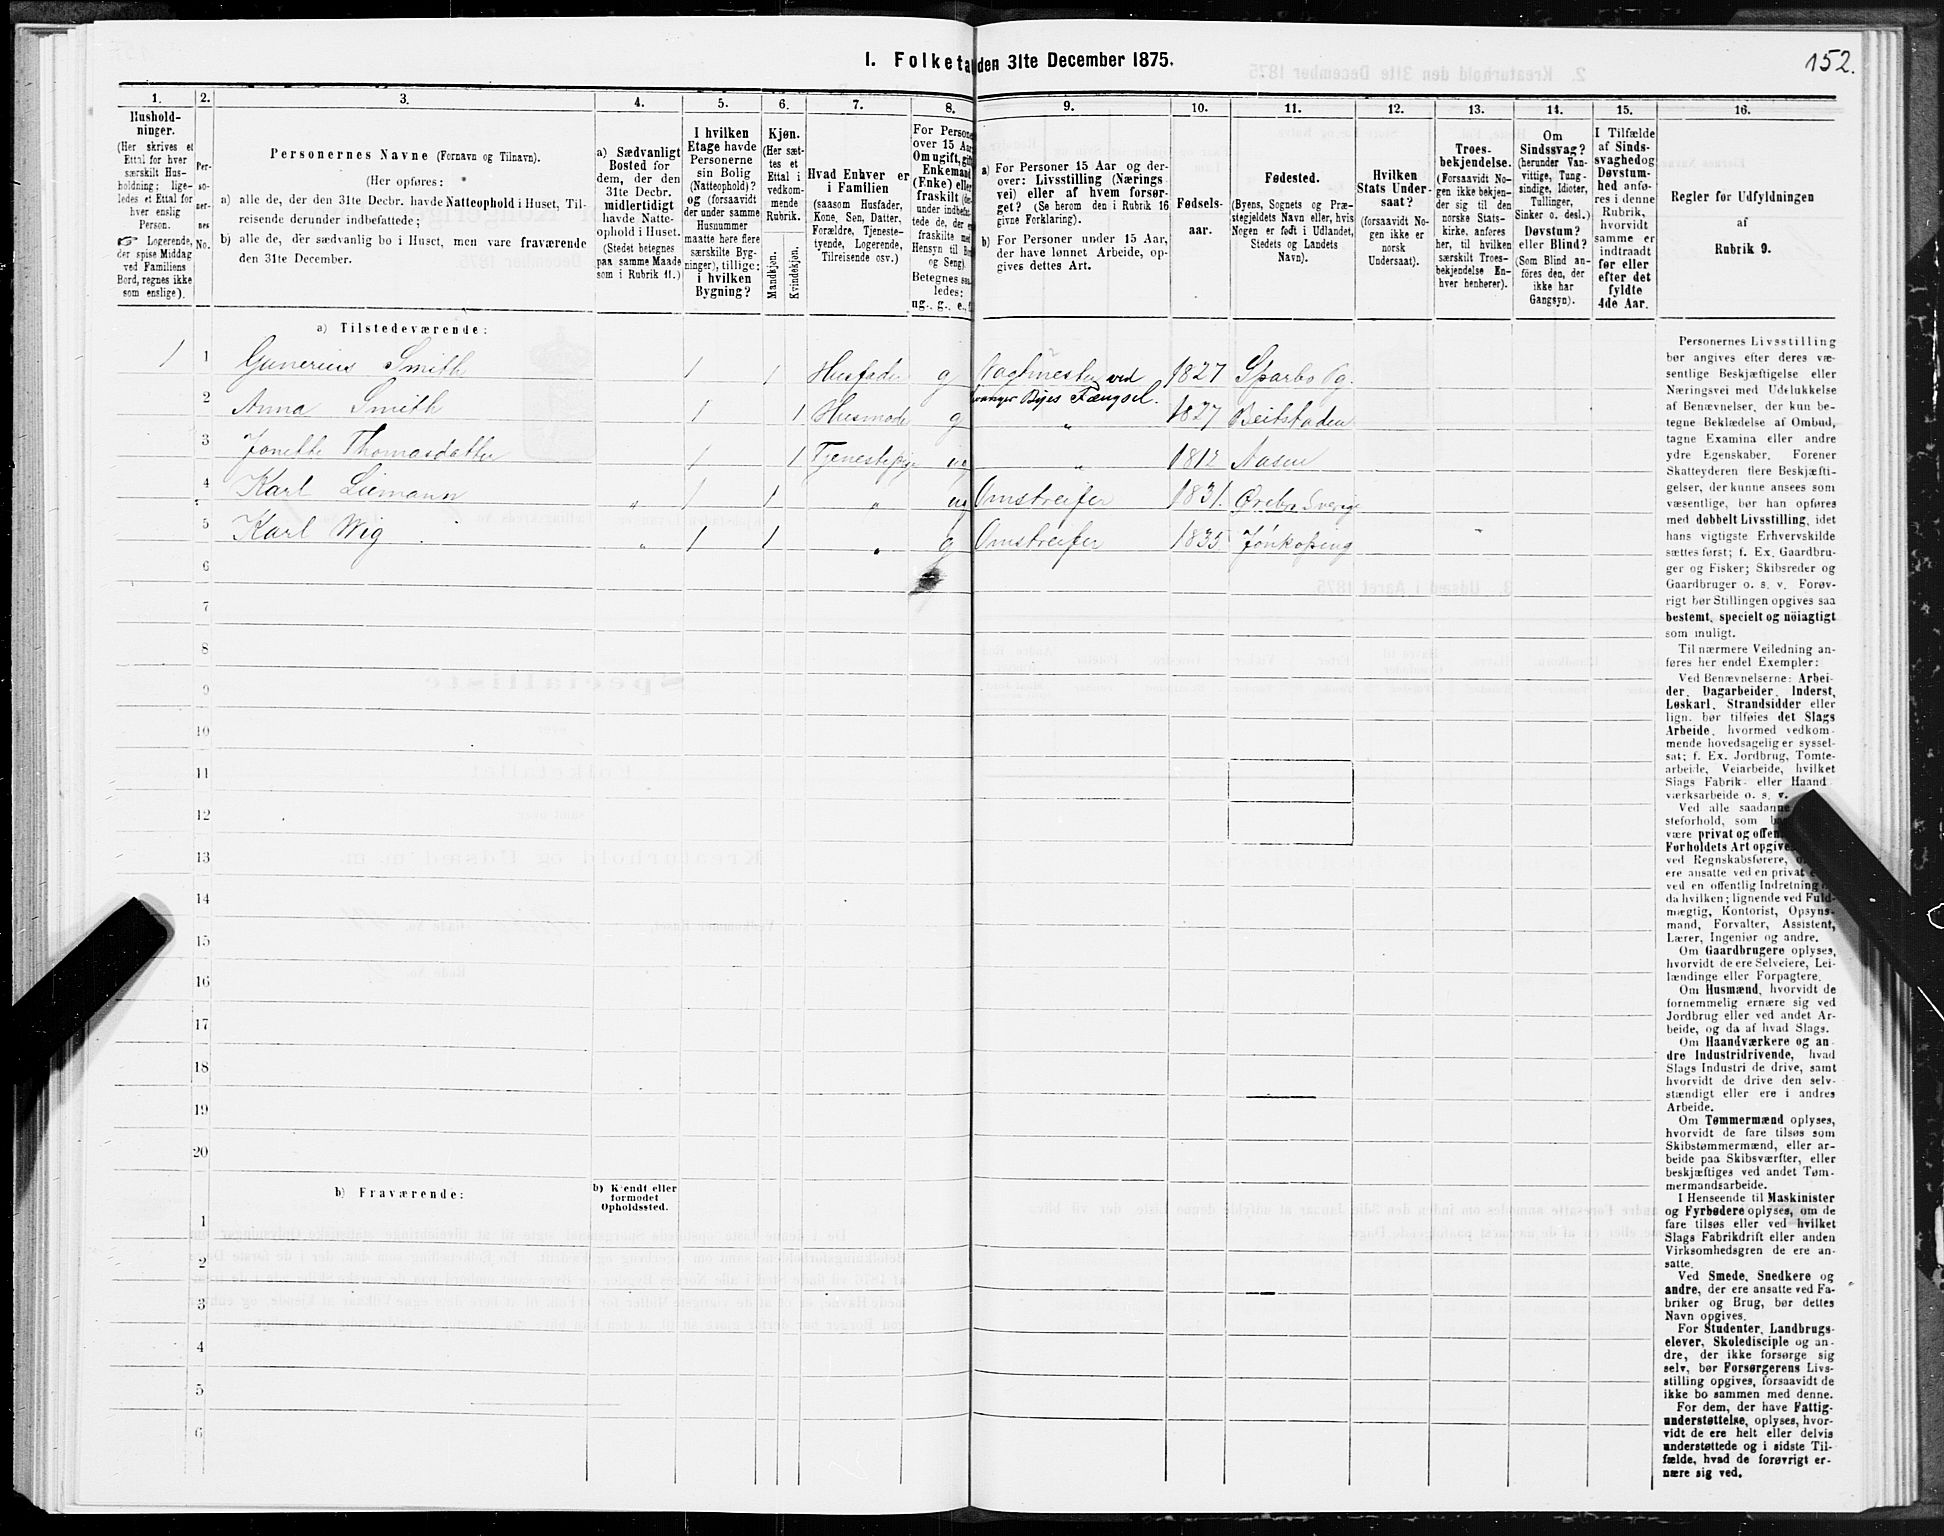 152.
I. Folketa den 31te December 1875.
1. 2. 3. 4. 5. 6. 7. 8. 9. 10. 11. 12. 13. 14. 15. 16.
Hushold-
ninger.
(Her skrives et
Ettal for hver
særskilt Hus-
holdning; lige-
ledes et Ettal for
hver enslig
Person.
☞ Logerende,
der spise Middag
ved Familiens
Bord, regnes ikke
som enslige).
Per-
so-
ner-
nes
No.
Personernes Navne (Fornavn og Tilnavn).
(Her opføres:
a) alle de, der den 31te Decbr. havde Natteophold i Huset, Til-
reisende derunder indbefattede;
b) alle de, der sædvanlig bo i Huset, men vare fraværende
den 31te December.
a) Sædvanligt
Bosted for
dem, der den
31te Decbr.
midlertidigt
havde Natte-
ophold i Huset.
(Stedet betegnes
paa samme Maade
som i Rubrik 11.)
I hvilken
Etage havde
Personerne
sin Bolig
(Natteophold)?
og (forsaavidt
der under samme
Husnummer
maatte here flere
særskilte Byg-
ninger), tillige:
i hvilken
Bygning?
Kjøn.
(Her sæt-
tes et
Ettal i
vedkom-
mende
Rubrik.
Mandkjøn.
Kvindekjøn.
Hvad Enhver er
i Familien
(saasom Husfader,
Kone, Søn, Datter,
Forældre, Tjeneste-
tyende, Logerende,
Tilreisende osv.)
For Persone
over 15 Aa
Om ugift, gift
Enkemand
(Enke) elle
fraskilt
under indbefat-
tede de, der e
fraskilte med
Hensyn til Bo
og Seng).
Betegnes saa
ledes:
ug., g., e.,
a) For Personer 15 Aar og der-
over: Livsstilling (Nærings
vei) eller af hvem forsør-
get? (Se herom den i Rubrik 16
givne Forklaring).
b) For Personer under 15 Aar,
der have lønnet Arbeide, op-
gives dettes Art.
Fødsels-
aar.
Fødested.
(Byens, Sognets og Præ-
stegjeldets Navn eller, hvis
Nogen er født i Udlandet,
Stedets og Landets
Navn).
Hvilken
Stats Under-
saat?
(forsaavidt No-
gen ikke er
norsk
Undersaat).
Troes-
bekjendelse.
(Forsaavidt No-
gen ikke bekjen-
der sig til den
norske Stats-
kirke, anføres
her, til hvilken
særskilt Troes-
bekjendelse En-
hver henhører).
Om
Sindssvag?
(herunder Van-
vittige, Tung-
sindige, Idioter,
Tullinger,
Sinker o. desl.)
Døvstum?
eller Blind?
(Som Blind an-
føres den, der
ikke har
Gangsyn).
I Tilfælde
af Sinds-
svaghed og
Døvstum-
hed anfø-
res i denne
Rubrik,
hvorvidt
samme er
indtraadt
før eller
efter det
fyldte
4de Aar.
Regler for Udfyldningen
af
Rubrik 9.
a) Tilstedeværende:
1 1 Gunerius Smith 1 1 Husfader g Vagtmester ved 1827 Sparbo Pg.
vanger Byes Fængsel.
2 Anna Smith 1 1 Husmode g „ 1827 Beitstaden
3 Jonette Thomasdatter 1 1 Tjenestepige ug „ 1812 Aasen
4 Karl Liemann „ 1 1 „ ug Omstreifer 1831. Örebro Sverige
5 Karl Wig „ 1 1 „ g Omstreifer 1835 Jönköping
6
7
8
9
10
11
12
13
14
15
16
17
18
19
20
b) Fraværende:
b) Kjendt eller
formodet
Opholdssted.
1
2
3
4
5
6
Personernes Livsstilling
bør angives efter deres væ-
sentlige Beskjæftigelse eller
Næringsvei med Udelukkelse
af Benævnelser, der kun be-
tegne Beklædelse af Ombud,
tagne Examina eller andre
ydre Egenskaber. Forener
Skatteyderen flere Beskjæfti-
gelser, der kunne ansees som
væsentlige, bør han opføres
med dobbelt Livsstilling, idet
hans vigtigste Erhvervskilde
sættes først; f. Ex. Gaardbru-
ger og Fisker; Skibsreder og
Gaardbruger o. s. v. Forøv-
rigt bør Stillingen opgives saa
bestemt, specielt og nöiagtigt
som muligt.
Til nærmere Veiledning an-
føres her endel Exempler:
Ved Benævnelserne: Arbei-
der, Dagarbeider, Inderst,
Løskarl, Strandsidder eller
lign. bør tilføies det Slags
Arbeide, hvormed vedkom-
mende hovedsagelig er syssel-
sat; f. Ex. Jordbrug, Tomte-
arbeide, Veiarbeide, hvilket
Slags Fabrik- eller Haand
værksarbeide o. s. v.
Ved alle saadanne
steforhold, som
være privat og offen
Forholdets Art opgive
ved Regnskabsførere,
ere ansatte ved en privat
ved en offentlig Indretning
da hvilken; lignende ved Fuld-
mægtig, Kontorist, Opsyns-
mand, Forvalter, Assistent,
Lærer, Ingeniør og andre.
Om Gaardbrugere oplyses,
hvorvidt de ere Selveiere, Lei-
lændinge eller Forpagtere.
Om Husmænd, hvorvidt de
fornemmelig ernære sig ved
Jordbrug eller ved andet Ar-
beide, og da af hvad Slags.
Om Haandværkere og an-
dre Industridrivende, hvad
Slags Industri de drive, samt
hvorvidt de drive den selv-
stændigt eller ere i andres
Arbeide.
Om Tømmermænd oplyses,
hvorvidt de fare tilsøs som
Skibstømmermænd, eller ar-
beide paa Skibsværfter, eller
beskjæftiges ved andet Tøm-
mermandsarbeide.
I Henseende til Maskinister
og Fyrbødere oplyses, om de
fare tilsøs eller ved hvilket
Slags Fabrikdrift eller anden
Virksomhedsgren de ere an-
satte.
Ved Smede, Snedkere og
andre, der ere ansatte ved Fa-
briker og Brug, bør dettes
Navn opgives.
For Studenter, Landbrugs-
elever, Skoledisciple og an-
dre, der ikke forsørge sig
selv, bør Forsørgerens Livs-
stilling opgives, forsaavidt de
ikke bo sammen med denne.
For dem, der have Fattig-
understøttelse, oplyses, hvor-
vidt de ere helt eller delvis
understøttede og i sidste Til-
fælde, hvad de forøvrigt er-
nære sig ved.